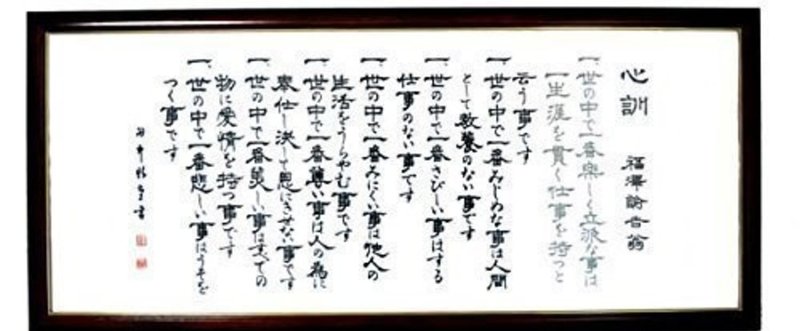 心訓　福澤諭吉翁
一、世の中で一番楽しく立派な事は
一生涯を貫く仕事を持つと
云う事です
一、世の中で一番みじめな事は人間
として教養のない事です
一、世の中で一番さびしい事はする
仕事のない事です
一、世の中で一番みにくい事は他人の
生活をうらやむ事です
一、世の中で一番尊い事は人の為に
奉仕し決して恩にきせない事です
一、世の中で一番美しい事はすべての
物に愛情を持つ事です
一、世の中で一番悲しい事はうそを
つく事です
書